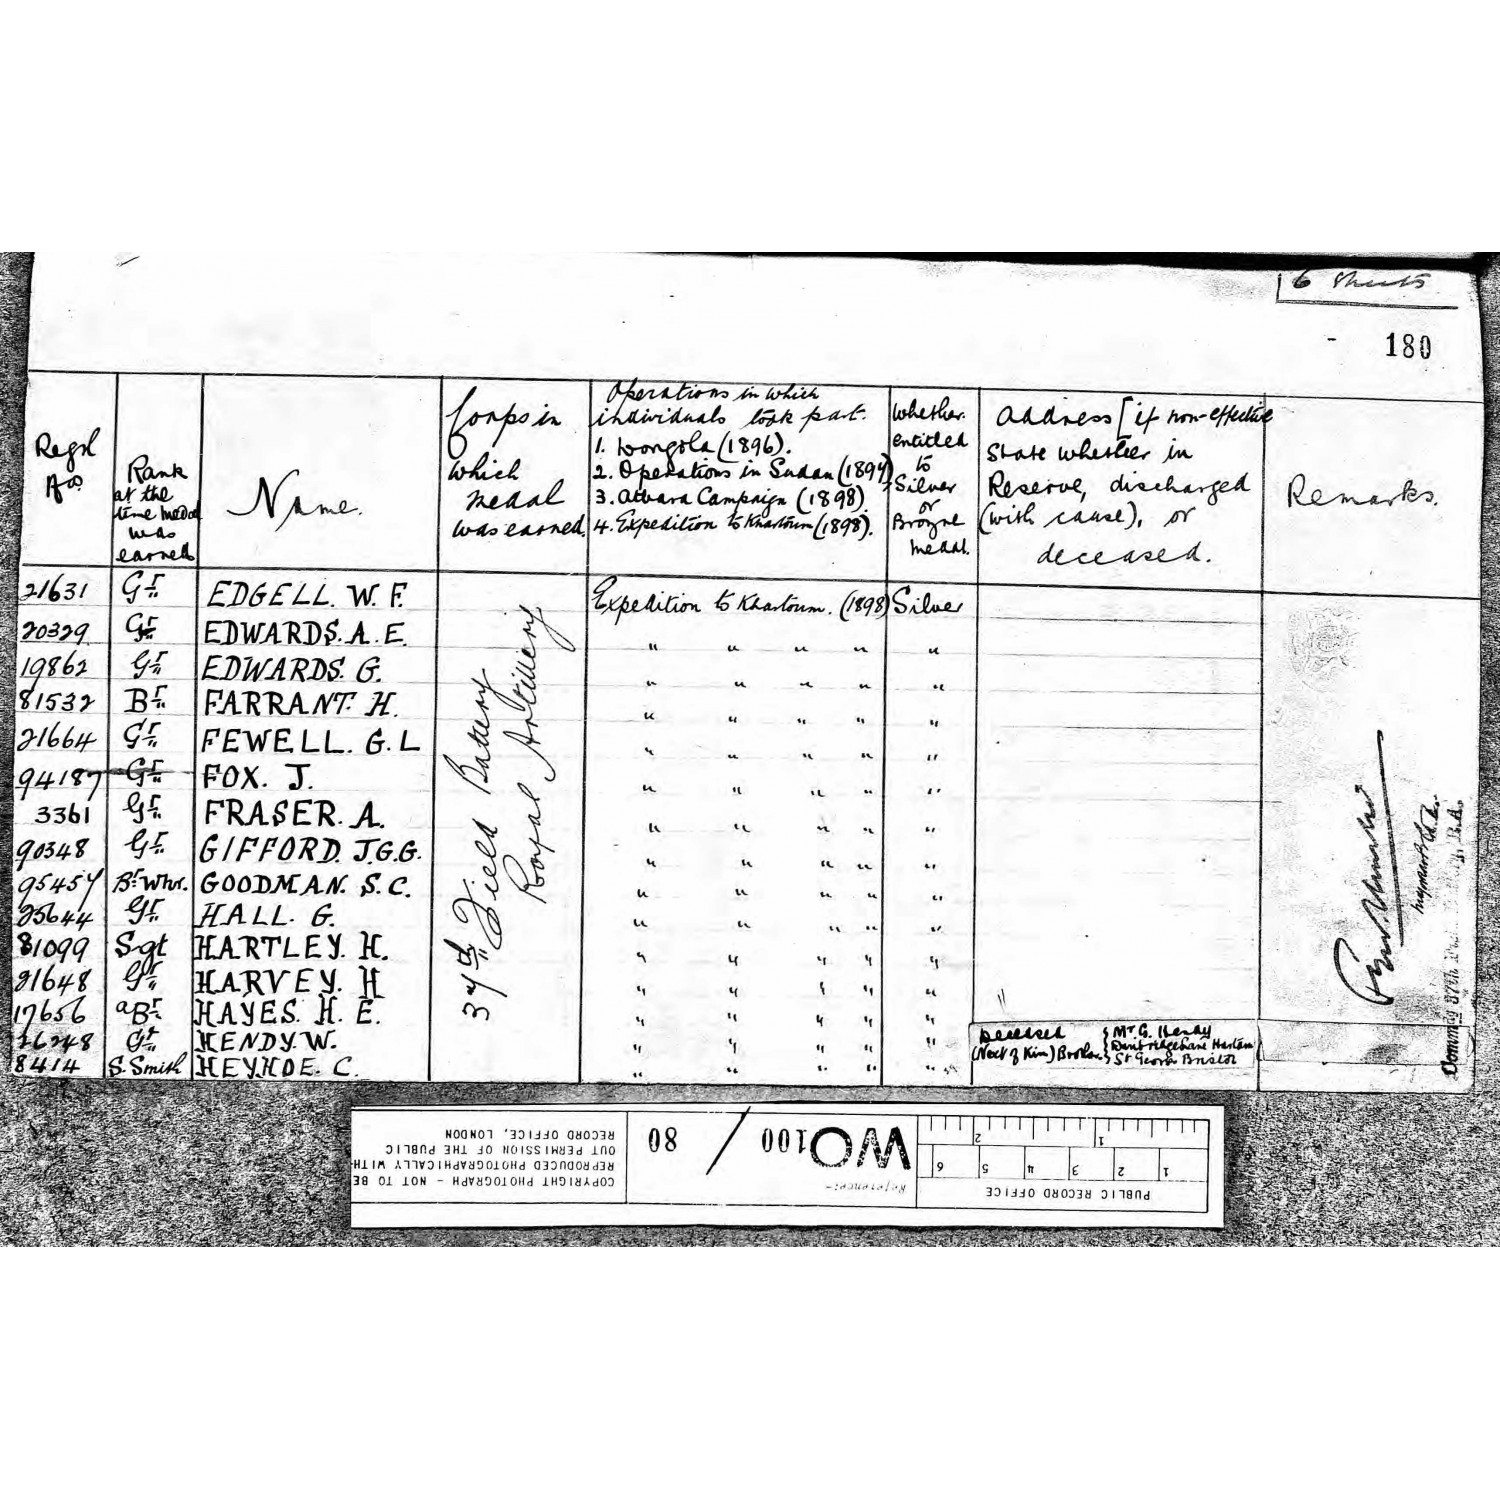 6 Sheets
180
Regtl Nos.
Rank at the time medal was earned
Name.
Corps in which medal was earned.
Operations in which individuals took part.
1. Dongola (1896).
2. Operations in Sudan (1897)
3. Atbara Campaign (1898)
4. Expedition to Khartoum (1898).
Whether entitled to Silver or Bronze medal.
Address [if non-effective State whether in Reserve, discharged (with cause), or deceased.
Remarks.
37th Field Battery Royal Artillery
21631 Gr. EDGELL. W. F. Expedition to Khartoum. (1898) Silver
20329 Gr. EDWARDS. A. E. " " " " "
19862 Gr. EDWARDS. G. " " " " "
81532 Br. FARRANT. H. " " " " "
21664 Gr. FEWELL. G. L " " " " "
94187 Gr. FOX. J. " " " " "
3361 Gr. FRASER. A. " " " " "
90348 Gr. GIFFORD. J.G.G. " " " " "
95457 Br. Whr. GOODMAN. S. C. " " " " "
25644 Gr. HALL. G. " " " " "
81099 Sgt HARTLEY. H. " " " " "
21648 Gr. HARVEY. H " " " " "
17656 aBr. HAYES. H. E. " " " " "
26248 Gr. HENDY. W. " " " " " Deceased (Next of Kin) Brother } Mr. G. Hendy
St George Bristol
8414 S. Smith HEYHOE. C. " " " " "
Major R.A.
Commdg 37th R.A.
PUBLIC RECORD OFFICE
1 2 3 4 5 6
1 2
Reference:-
WO 100 / 80
COPYRIGHT PHOTOGRAPH - NOT TO BE
REPRODUCED PHOTOGRAPHICALLY WITH-
OUT PERMISSION OF THE PUBLIC
RECORD OFFICE, LONDON